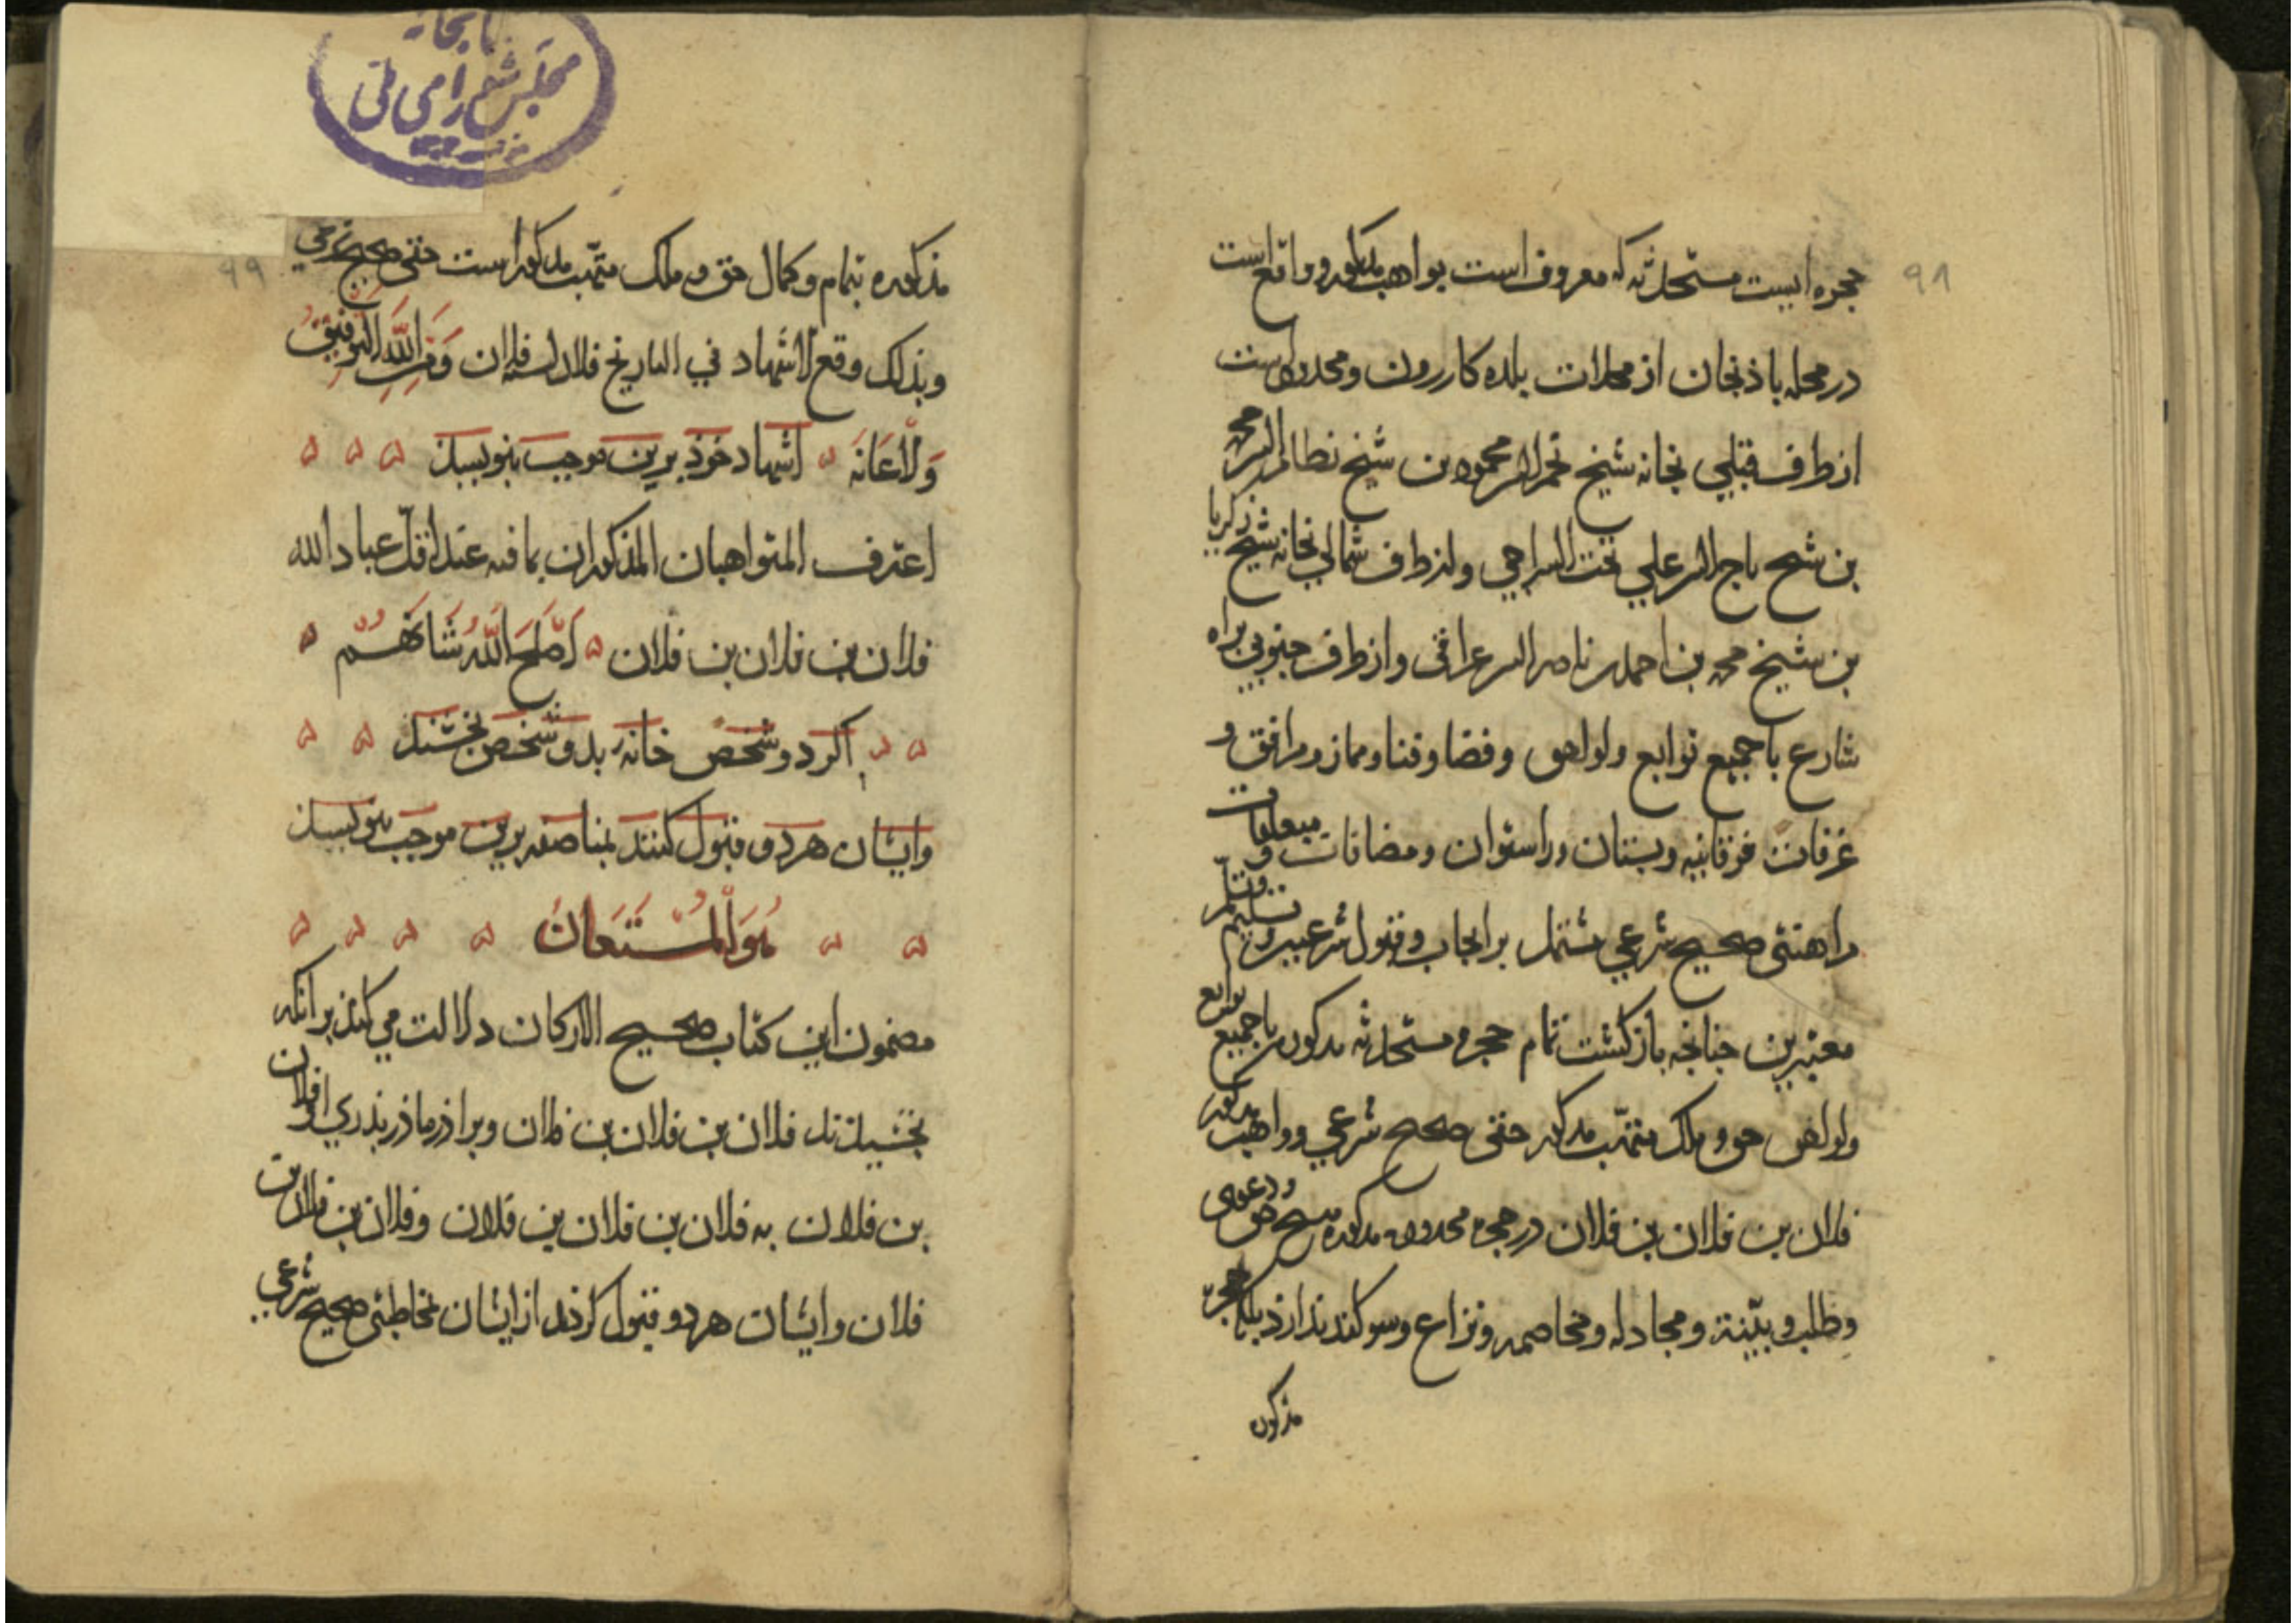 ۹۸
حجره ایست مستحدثه که معروف است بواهب مذکور و واقع است
در محله باذنجان از محلات بلده کازرون و محدود است
از طرف قبلی بخانه شیخ محمود بن شیخ نظام الدین محمد
بن شیخ تاج الدین علی السراجی و از طرف شمالی بخانه شیخ زکریا
بن شیخ محمد بن احمد بن ناصر الدین عراقی و از طرف جنوبی براه
شارع با جمیع توابع و لواحق و فضا و فنا و مماز و مرافق و
غرفات فوقانیه و بستان و راستوان و مضافات و متعلقات
را هبتی صحیح شرعی مشتمل بر ایجاب و قبول شرعیین و تسلیم و تسلم
معتبرین جنانجه باز کشت تمام حجره مستحدثه مذکوره با جمیع توابع
و لواحق حق و ملک متهب مذکور حقی صحیح شرعی و واهب مذکور
فلان بن فلان بن فلان در حجره محدوده مذکوره هیچ حق و دعوی
و طلب و بیّنة و مجادله و مخاصمه و نزاع و سوکند ندارذ بلکه حجره
مذکوره
مجلس شورای ملی
۹۹
مذکوره بتمام و کمال حق و ملک متهّب مذکور است حقی صحیح شرعی
وبذلک وقع الاشهاد فی التاریخ فلان لسنه فلان وَمِنَ اللّٰهِ التَّوفِيقُ
وَالْاعَانَه اشهاد خوذ برین موجب بنویسند
اعترف المتواهبان المذکوران بما فیه عند اقلّ عباد الله
فلان بن فلان بن فلان اَصْلَحَ اللّٰهُ شَانَهُمْ
اکر دو شخص خانهٔ بدو شخص بخشند
وایشان هردو قبول کنند بمناصفه برین موجب بنویسند
هُوَ الْمُسْتَعَانُ
مضمون این کتاب صحیح الارکان دلالت می کند بر آنکه
بخشیدند فلان بن فلان بن فلان و براذر ماذر بذری او فلان
بن فلان به فلان بن فلان بن فلان و فلان بن فلان بن
فلان و ایشان هردو قبول کردند از ایشان مخاطبتی صحیح شرعی